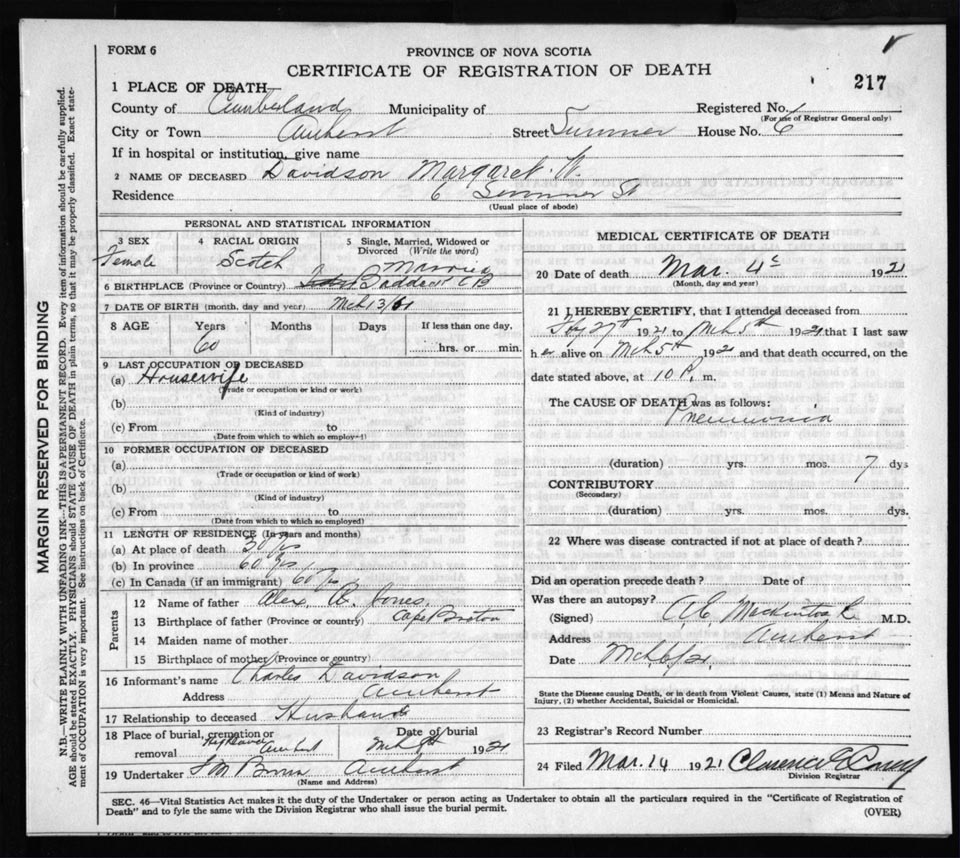 FORM 6
PROVINCE OF NOVA SCOTIA
CERTIFICATE OF REGISTRATION OF DEATH
217
1 PLACE OF DEATH
County of Cumberland Municipality of Registered No.
(For use of Registrar General only)
City or Town Amherst Street Summer House No. 6
If in hospital or institution, give name
2 NAME OF DECEASED Davidson Margaret W.
Residence 6 Summer St
(Usual place of abode)
PERSONAL AND STATISTICAL INFORMATION
3 SEX 4 RACIAL ORIGIN 5 Single, Married, Widowed or Divorced (Write the word)
Female Scotch Married
6 BIRTHPLACE (Province or Country) Baddeck CB
7 DATE OF BIRTH (month, day and year) Mch 13/61
8 AGE Years Months Days If less than one day,
60 hrs. or min.
9 LAST OCCUPATION OF DECEASED
(a) Housewife
(Trade or occupation or kind or work)
(b)
(Kind of industry)
(c) From to
(Date from which to which so employed)
10 FORMER OCCUPATION OF DECEASED
(a)
(Trade or occupation or kind of work)
(b)
(Kind of industry)
(c) From to
(Date from which to which so employed)
11 LENGTH OF RESIDENCE (In years and months)
(a) At place of death 30 yrs
(b) In province 60 yrs
(c) In Canada (if an immigrant) 60 yrs
Parents
12 Name of father Alex. Jones
13 Birthplace of father (Province or country) Cape Breton
14 Maiden name of mother
15 Birthplace of mother (Province or country)
16 Informant's name Charles Davidson
Address Amherst
17 Relationship to deceased Husband
18 Place of burial, cremation or removal Highland Amherst Date of burial Mch 8th 1921
19 Undertaker Amherst
(Name and Address)
MEDICAL CERTIFICATE OF DEATH
20 Date of death Mar. 4 1921
(Month, day and year)
21 I HEREBY CERTIFY, that I attended deceased from
27th 1921 to Mch 5th 1921 that I last saw
h er alive on Mch 5th 1921 and that death occurred, on the
date stated above, at 10 P. m.
The CAUSE OF DEATH was as follows:
Pneumonia
(duration) yrs. mos. 7 dys
CONTRIBUTORY
(Secondary)
(duration) yrs. mos. dys.
22 Where was disease contracted if not at place of death?
Did an operation precede death? Date of
Was there an autopsy?
(Signed) M.D.
Address Amherst
Date Mch 6/21
State the Disease causing Death, or in death from Violent Causes, state (1) Means and Nature of Injury, (2) whether Accidental, Suicidal or Homicidal.
23 Registrar's Record Number
24 Filed Mar. 14 1921 Clarence
Division Registrar
SEC. 46—Vital Statistics Act makes it the duty of the Undertaker or person acting as Undertaker to obtain all the particulars required in the "Certificate of Registration of
Death" and to fyle the same with the Division Registrar who shall issue the burial permit.
(OVER)
MARGIN RESERVED FOR BINDING
N.B.—WRITE PLAINLY WITH UNFADING INK—THIS IS A PERMANENT RECORD. Every item of information should be carefully supplied.
AGE should be stated EXACTLY. PHYSICIANS should STATE CAUSE OF DEATH in plain terms, so that it may be properly classified. Exact statement of OCCUPATION is very important. See instructions on back of Certificate.